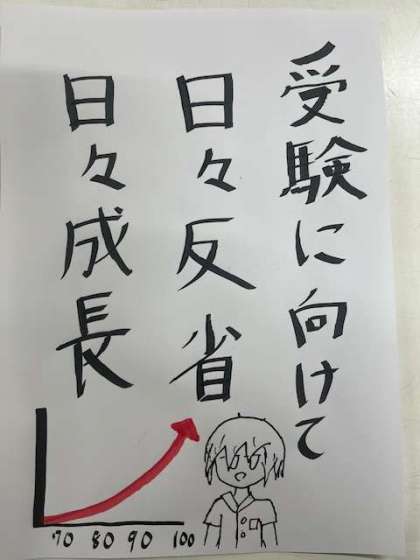 受験に向けて
日々反省
日々成長
70 80 90 100